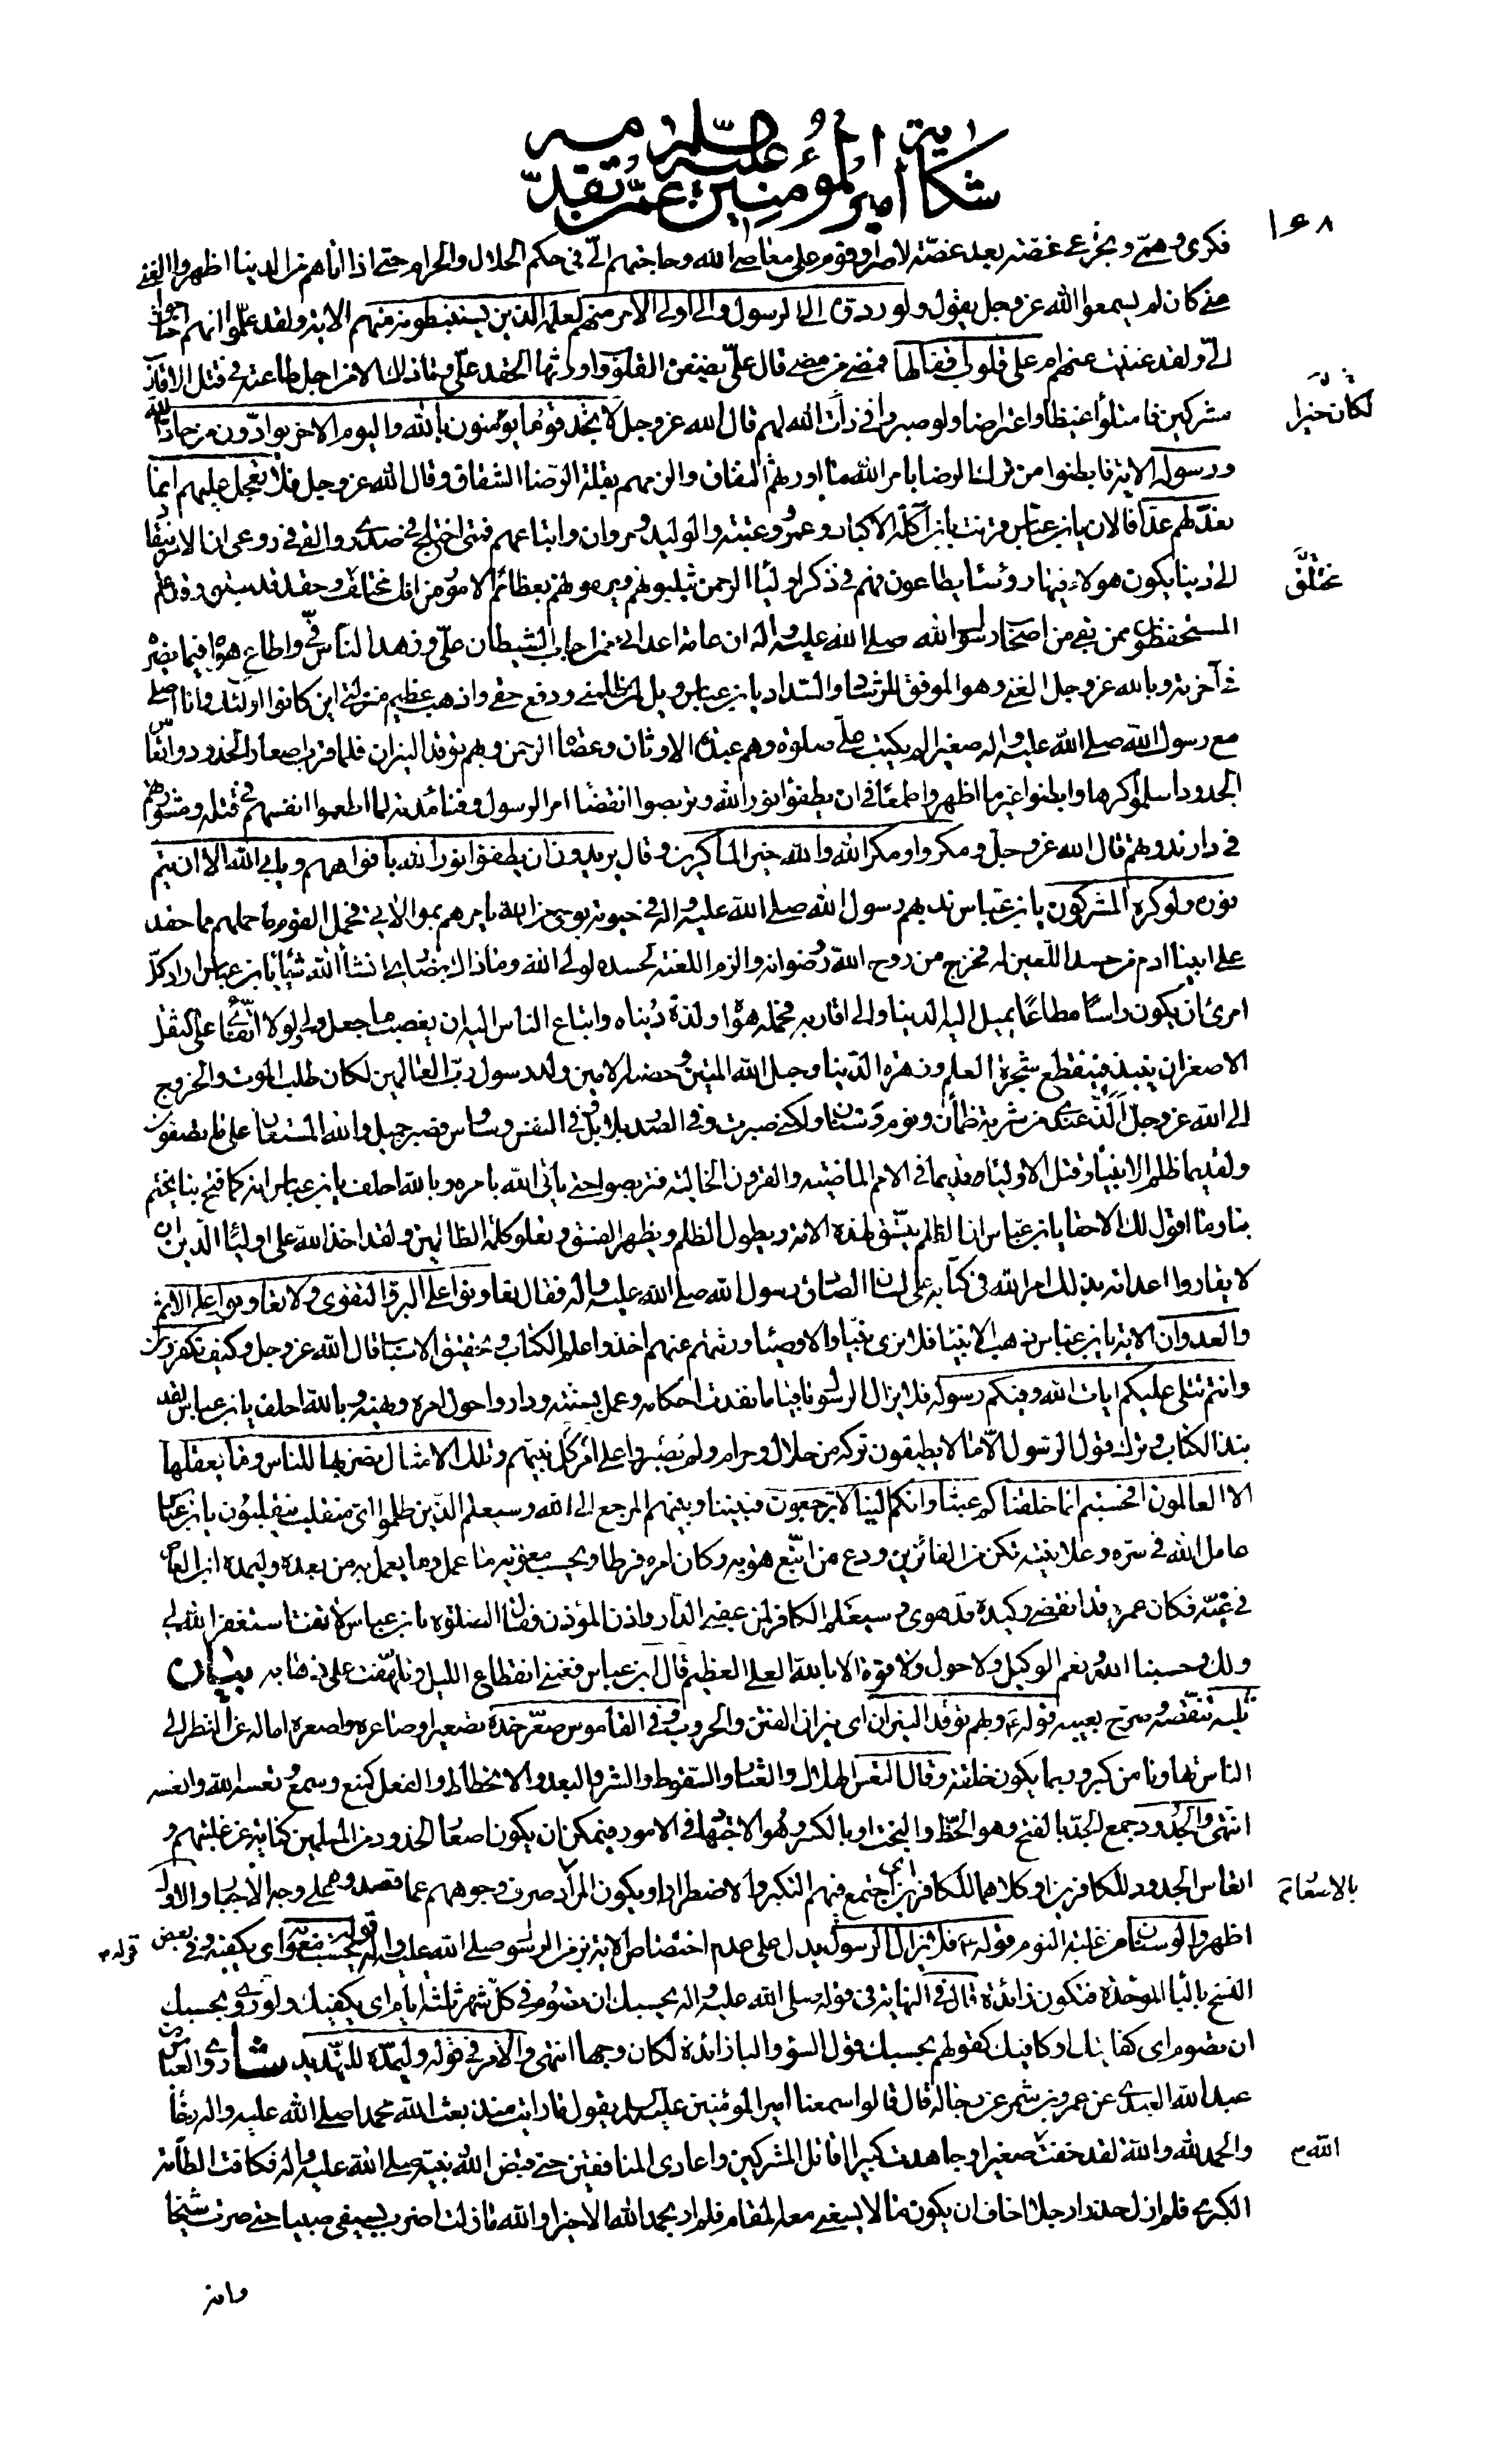 شكاية أمير المؤمنين عليه السلام عمن تقدمه
١٤٨
فكرى وهمى وتجرعى غصة بعد غصة لامر او قوم على معاصى الله وحاجتهم الى فى حكم الحلال والحرام حتى اذا اتاهم من الدنيا اظهروا الغنى
عنى كان لم يسمعوا الله عز وجل يقول ولو ردوه الى الرسول والى اولى الامر منهم لعلمه الذين يستنبطونه منهم الاية ولقد علموا انهم احتاجوا
الى ولقد غنيت عنهم ام على قلوب اقفالها فمضى من مضى قال على بضغن القلوب واورثها الحقد على وما ذلك الا من اجل طاعته فى قتل الاقارب
مشركين فامتلؤا غيظا واعتراضا ولو صبروا فى ذات الله لهم قال الله عز وجل لا تجد قوما يؤمنون بالله واليوم الاخر يوادون من حاد الله
لكان خيرا
ورسوله الاية فابطنوا من ترك الرضا بامر الله ما اورثهم النفاق والزمهم بقلة الرضا الشقاق وقال الله عز وجل فلا تعجل عليهم انما
نعد لهم عدا فالان يابن عباس قرنت بابن آكلة الاكباد وعمرو وعتبة والوليد ومروان واتباعهم فمتى اختلج فى صدرى والقى فى روعى ان الامر ينقاد
الى دنيا يكون هولاء فيها رؤسا يطاعون فهم فى ذكر اوليا الرحمن يثلبونهم ويرمونهم بعظائم الامور من افك مختلف وحقد قد سبق وقد علم
مختلق
المستحفظون ممن بقى من اصحاب رسول الله صلى الله عليه واله ان عامة اعدائى ممن اجاب الشيطان على وزهد الناس فى واطاع هواه فيما يضره
فى آخرته وبالله عز وجل الغنى وهو الموفق للرشاد والسداد يابن عباس ويل لمن ظلمنى ودفع حقى واذهب عظيم منزلتى اين كانوا اولئك وانا اصلى
مع رسول الله صلى الله عليه واله صغيرا لم يكتب على صلوة وهم عبدة الاوثان وعصاة الرحمن وبهم توقد النيران فلما قرب اصعار الخدود واتعاس
الجدود اسلموا كرها وابطنوا غير ما اظهروا طمعا فى ان يطفؤا نور الله وتربصوا انقضا امر الرسول وفنا مدته لما اطمعوا انفسهم فى قتله ومشورتهم
فى دار ندوتهم قال الله عز وجل ومكروا ومكر الله والله خير الماكرين وقال يريدون ان يطفؤا نور الله بافواههم ويابى الله الا ان يتم
نوره ولو كره المشركون يابن عباس ندبهم رسول الله صلى الله عليه واله فى حيوته بوحى من الله يامرهم بموالاتى فحمل القوم ما حملهم مما حقد
على ابينا ادم من حسد اللعين له فخرج من روح الله ورضوانه والزم اللعنة لحسده لولى الله وما ذاك بضارى انشا الله شيئا يابن عباس اراد كل
امرئ ان يكون راسا مطاعا يميل اليه الدنيا والى اقاربه فحمله هواه ولذة دنياه واتباع الناس اليه ان يغصب ما جعل لى ولولا اتقائى على الثقل
الاصغر ان ينبذ فينقطع شجرة العلم وزهرة الدنيا وحبل الله المتين وحصنه الامين ولد رسول رب العالمين لكان طلب الموت والخروج
الى الله عز وجل الذ عندى من شربة ظمأن ونوم وسنان ولكنى صبرت وفى الصدر بلابل وفى النفس وساوس فصبر جميل والله المستعان على ما تصفون
ولقديما ظلم الانبيا وقتل الاوليا قديما فى الامم الماضية والقرون الخالية فتربصوا حتى ياتى الله بامره وبالله احلف يابن عباس انه كما فتح بنا يختم
بنا وما اقول لك الا حقا يابن عباس ان الظلم يتسق لهذه الامة ويطول الظلم ويظهر الفسق وتعلو كلمة الظالمين ولقد اخذ الله على اوليا الدين ان
لا يقاروا اعدائه بذلك امر الله فى كتابه على لسان الصادق رسول الله صلى الله عليه واله فقال تعاونوا على البر والتقوى ولا تعاونوا على الاثم
والعدوان الاية يابن عباس ذهب الانبيا فلا ترى نبيا والاوصيا ورثتهم عنهم اخذوا علم الكتاب وتحقيق الاسباب قال الله عز وجل وكيف تكفرون
وانتم تتلى عليكم ايات الله وفيكم رسوله فلا يزال الرسول باقيا ما نفدت احكامه وعمل بسنته وداروا حول امره ونهيه وبالله احلف يابن عباس لقد
نبذ الكتاب وترك قول الرسول الا ما لا يطيقون تركه من حلال وحرام ولم يصبروا على امر كل نبيهم وتلك الامثال نضربها للناس وما يعقلها
الا العالمون افحسبتم انما خلقناكم عبثا وانكم الينا لا ترجعون فبيننا وبينهم المرجع الى الله وسيعلم الذين ظلموا اى منقلب ينقلبون يابن عباس
عامل الله فى سره وعلانيته تكن من الفائزين ودع من اتبع هويه وكان امره فرطا ويحسب معوية ما عمل وما يعمل به من بعده وليمده ابن العاص
فى غيه فكان عمره قد انقضى وكيده قد هوى وسيعلم الكافر لمن عقبى الدار واذن المؤذن فقال الصلوة يابن عباس لا تفت استغفر الله لى
ولك وحسبنا الله ونعم الوكيل ولا حول ولا قوة الا بالله العلى العظيم قال ابن عباس فغمنى انقطاع الليل وتلهفت على ذهابه بيان
ثلبه تنقصه وصرح بعيبه قوله ع وبهم توقد النيران اى نيران الفتن والحروب وفى القاموس صعر خده تصعيرا وصاعره واصعره اماله عن النظر الى
الناس تهاونا من كبر وربما يكون خلقة وقال التعس الهلاك والعثار والسقوط والشر والبعد والانحطاط والفعل كمنع وسمع وتعسه الله واتعسه
انتهى والجدود جمع الجد بالفتح وهو الحظ والبخت او بالكسر وهو الاجتهاد فى الامور فيمكن ان يكون اصعار الخدود من المسلمين كناية عن غلبتهم و
اتعاس الجدود للكافرين او كلاهما للكافرين اى اجتمع فيهم التكبر والاضطرار او يكون المراد صرف وجوههم عما قصدوه على وجه الاجبار والاول
بالاستعانة
اظهر والوسنان من غلبه النوم قوله ع فلا يزال الرسول يدل على عدم اختصاص الاية بزمن الرسول صلى الله عليه واله قوله يحسب معوية اى يكفيه وفى بعض
قوله م
النسخ بالبا الموحدة فتكون زائدة قال فى النهاية فى قوله صلى الله عليه واله يحسبك ان تصوم فى كل شهر ثلثة ايام اى يكفيك ولو روى بحسبك
ان تصوم اى كفايتك او كافيك كقولهم بحسبك قول السؤ والبا زائدة لكان وجها انتهى والامر فى قوله وليمده للتهديد شا روى العباس بن
عبد الله العبدى عن عمرو بن شمر عن رجاله قال قالوا سمعنا امير المؤمنين عليه السلام يقول ما رايت منذ بعث الله محمدا صلى الله عليه واله رخاء
والحمد لله والله لقد خفت صغيرا وجاهدت كبيرا اقاتل المشركين واعادى المنافقين حتى قبض الله نبيه صلى الله عليه واله فكانت الطامة
الله م
الكبرى فلم ازل حذرا وجلا اخاف ان يكون ما لا يسعنى معه المقام فلم ار بحمد الله الا خيرا والله ما زلت اضرب بسيفى صبيا حتى صرت شيخا
وانه